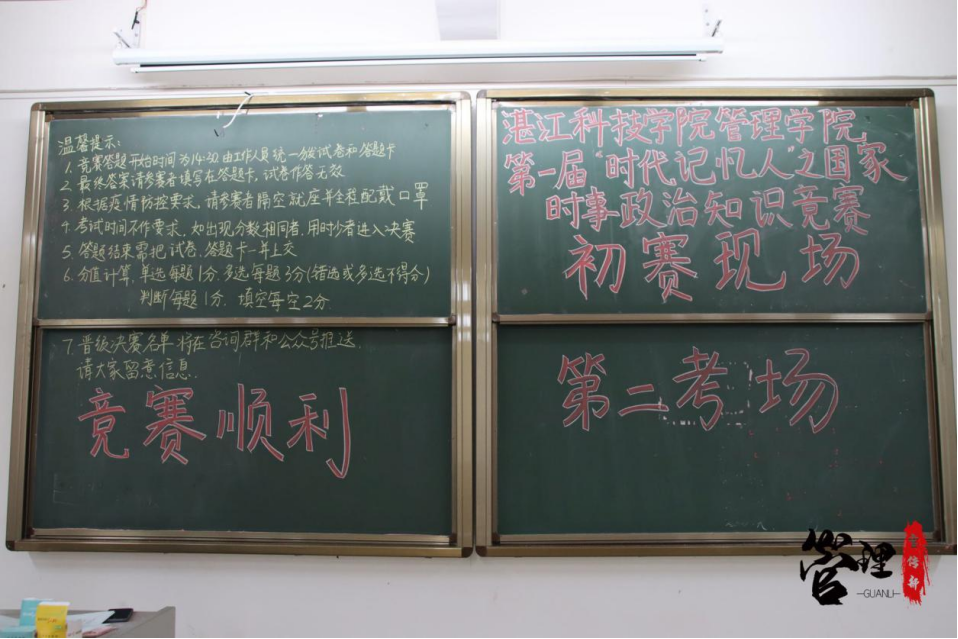 温馨提示:
1. 竞赛答题开始时间为14:30.由工作人员统一分发试卷和答题卡
2. 最终答案请参赛者填写在答题卡,试卷作答无效
3. 根据疫情防控要求,请参赛者隔空就座并全程配戴口罩
4. 考试时间不作要求,如出现分数相同者,用时少者进入决赛
5. 答题结束需把试卷、答题卡一并上交
6. 分值计算,单选每题1分.多选每题3分(错选或多选不得分)
判断每题1分.填空每空2分.
7. 晋级决赛名单将在咨询群和公众号推送.
请大家留意信息.
竞赛顺利
湛江科技学院管理学院
第一届"时代记忆人"之国家
时事政治知识竞赛
初赛现场
第二考场
管理
GUANLI
宣传部